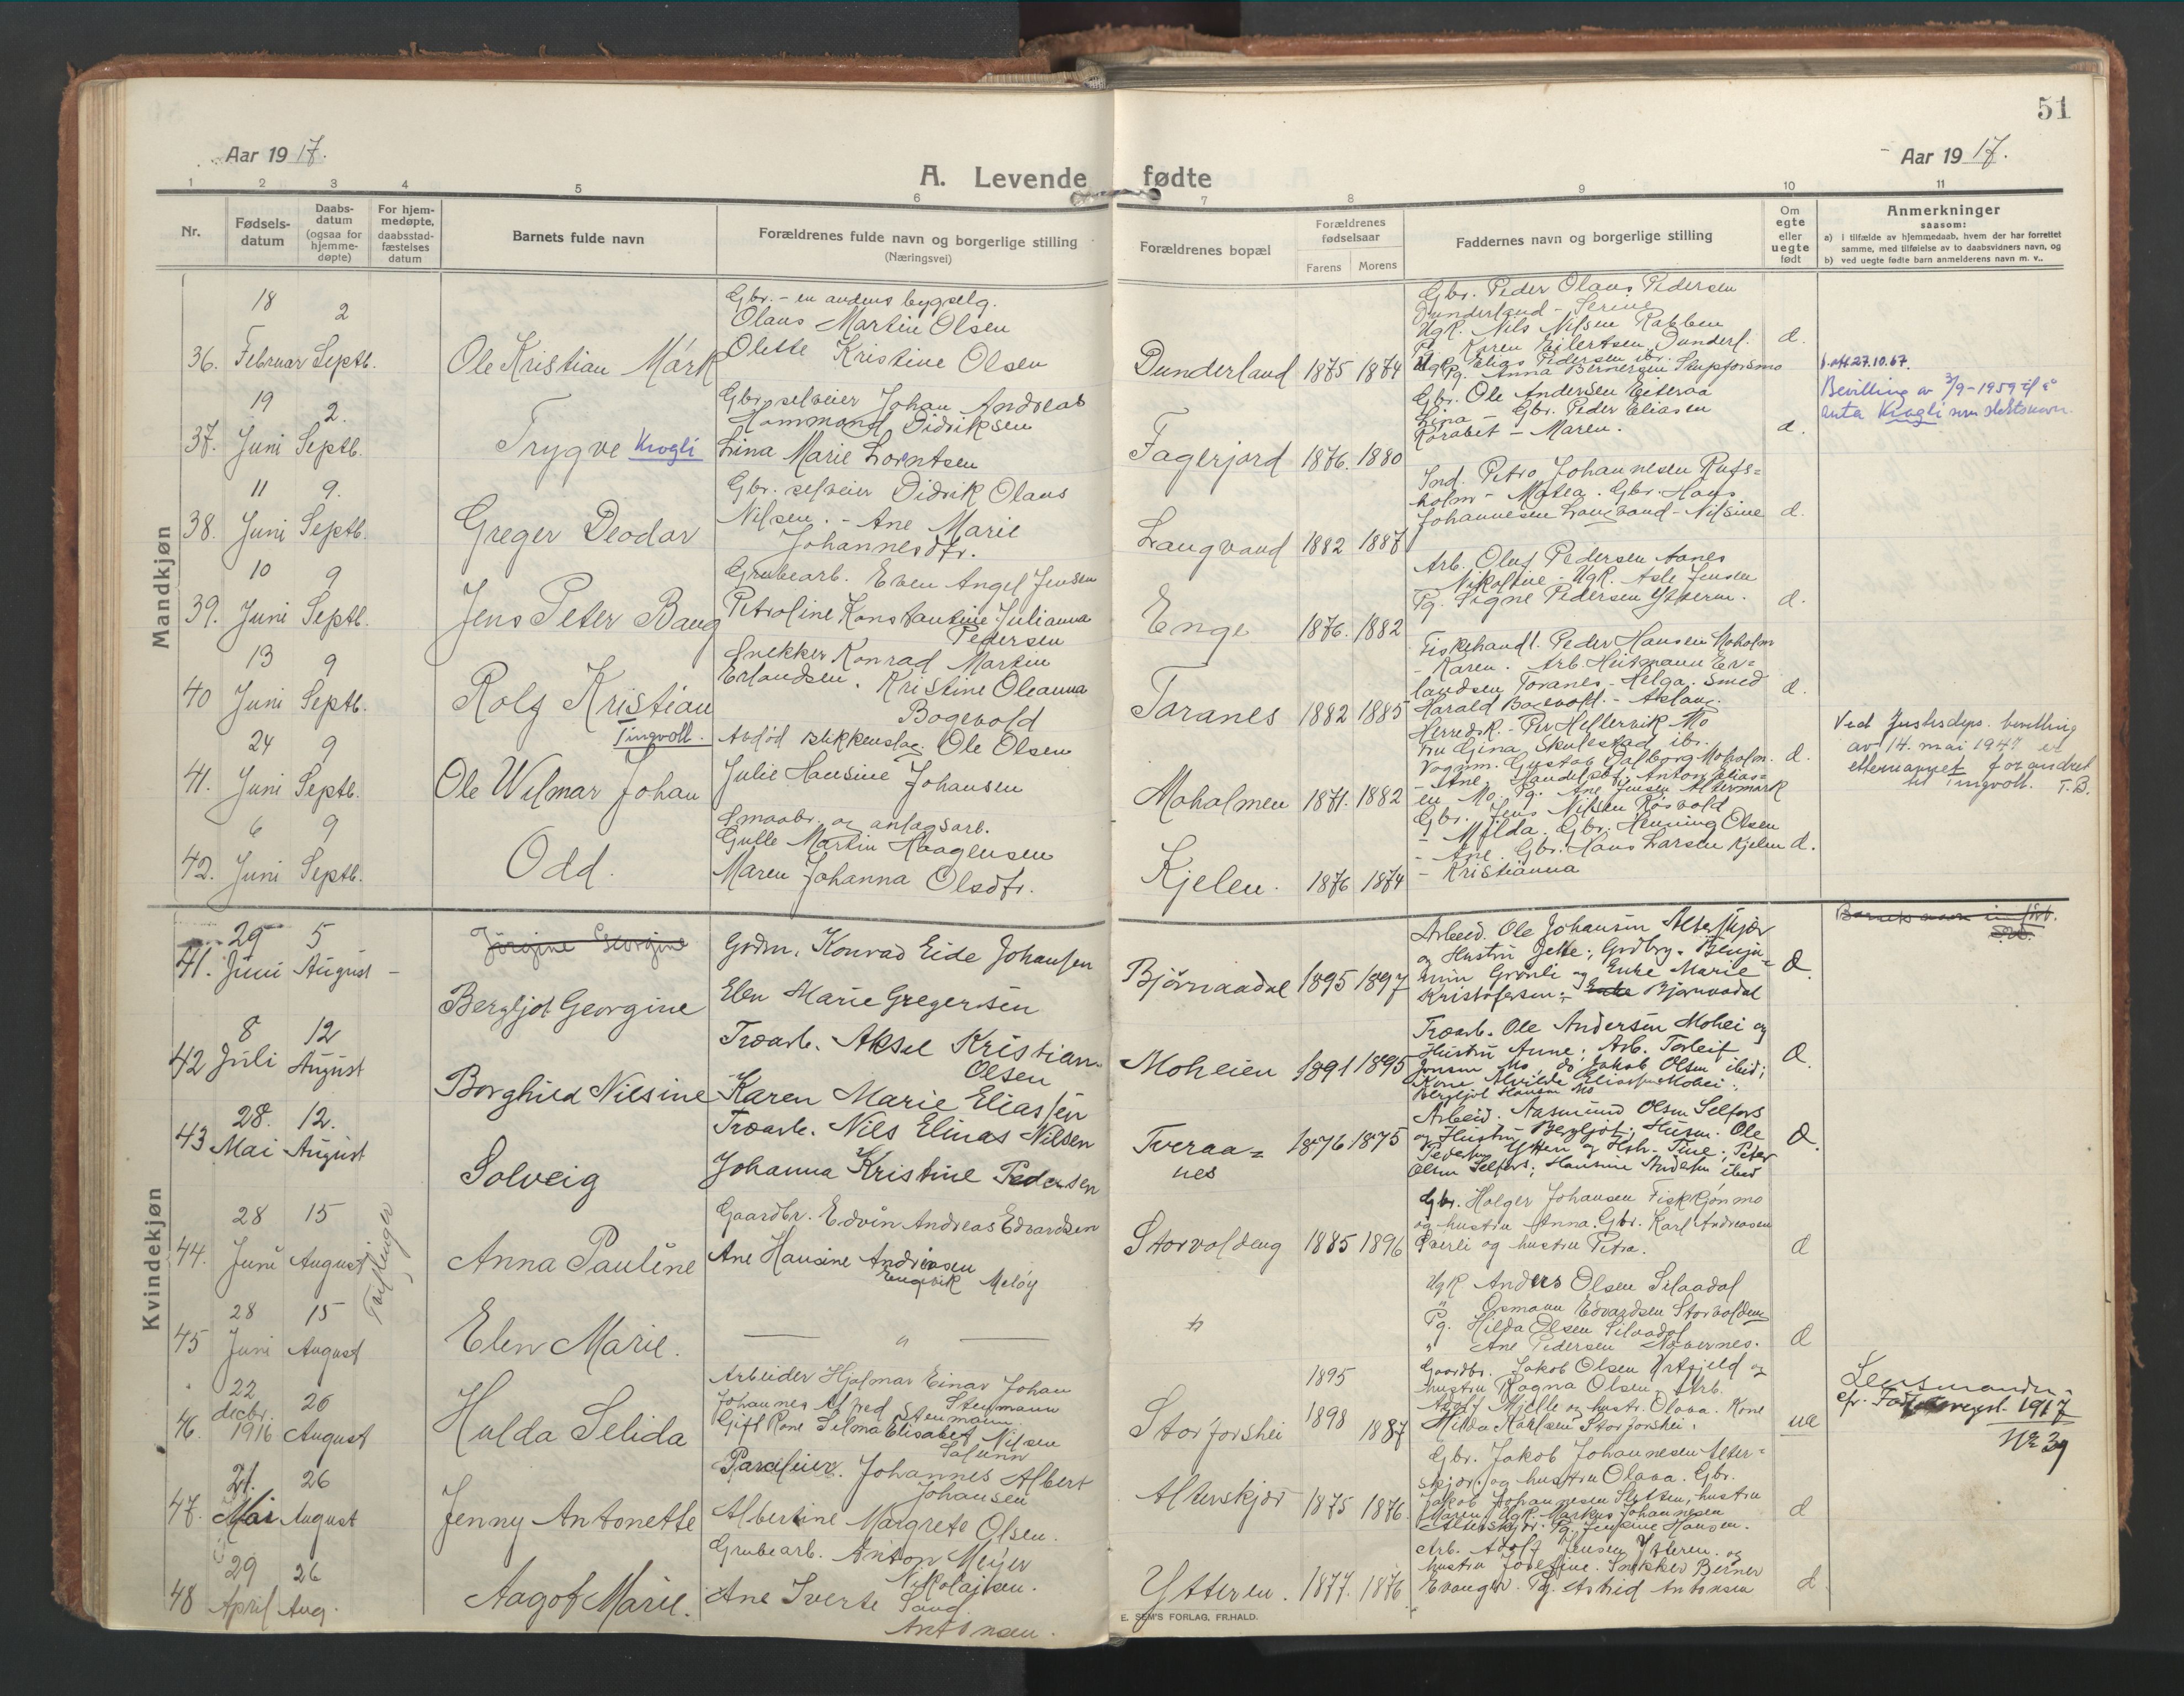 51
Aar 1917.
Aar 1917.
A. Levende fødte
1 2 3 4 5 6 7 8 9 10 11
Nr.
Fødsels-
datum
Daabs-
datum
(ogsaa for
hjemme-
døpte)
For hjem-
medøpte,
daabsstad-
fæstelses
datum
Barnets fulde navn
Forældrenes fulde navn og borgerlige stilling
(Næringsvei)
Forældrenes bopæl
Forældrenes
fødselsaar
Farens Morens
Faddernes navn og borgerlige stilling
Om
egte
eller
uegte
født
Anmerkninger
saasom:
a) i tilfælde av hjemmedaab, hvem der har forrettet
samme, med tilføielse av to daabsvidners navn, og
b) ved uegte fødte barn anmelderens navn m. v..
Mandkjøn
36.
18
Februar
2
Septb.
Ole Kristian Mark
Gbr. - en andens bygselg.
Olaus Martin Olsen
Olette Kristine Olsen
Dunderland 1875 1874
Gbr. Peder Olaus Pedersen
Dunderland - Serine
Ugk. Nils Nilsen Rabben
Pg. Karen Eilertsen Dunderl.
Ugk. Elias Pedersen ibr.
Pg. Anna Bernersen Skupforsmo
d.
37.
19
Juni
2.
Septb.
Trygve Krogli
Gbr. selveier Johan Andreas
Hammond Didriksen
Lina Marie Lorntsen
Fagerjord 1876. 1880
Gbr. Ole Andersen Eiteraa
Lina - Gbr. Peder Eliasen
Rørabet - Maren.
d.
f. att 27.10.67.
Bevilling av 3/9-1959 til å
anta Krogli som slektsnavn.
38.
11
Juni
9.
Septb.
Greger Deodar
Gbr. selveier Didrik Olaus
Nilsen. - Ane Marie
Johannesdtr.
Langvand 1882 1887
Ind. Petro Johannesen Rufs=
holm - Matea. Gbr. Hans
Johannesen Langvand - Nilsine
d.
39.
10
Juni
9
Septb.
Jens Peter Bang
Grubearb. Even Angel Jensen
Petroline Konstantine Julianna
Pedersen
Enge 1876. 1882
Arb. Oluf Pedersen Aanes
Nikoline - Ugk. Asle Jensen
Pg. Signe Pedersen Ytterm.
d.
40
13
Juni
9
Septb.
Rolf Kristian
Snekker Konrad Marten
Erlandsen. Kristine Oleanna
Bogevold
Toranes 1882 1885
Fiskehandl. Peder Hansen Moholm
- Karen. Arb. Heitmann Er=
landsen Toranes - Helga. Smed
Harald Bogevold. - Aslaug.
d.
41.
24
Juni
9
Septb.
Ole Wilmar Johan
Tingvoll.
Avdød Blikkenslag. Ole Olsen
Julie Hansine Johansen
Moholmen 1871. 1882
Herredsk. - Per Hellervik Mo
Fru Gina Skulestad ibr.
Vognm. Gustav Dalborg Moholm.
- Ane. Handelsbtj. Anton Elias=
en Mo. Pg. Ane Jensen Altermark
d.
Ved Justisdeps. bevilling
av 14. mai 1947 er
etternavnet forandret
til Tingvoll. T.B.
42.
6
Juni
9
Septb.
Odd.
Smaabr. og anlagsarb.
Gulle Martin Haagensen
Maren Johanna Olsdtr.
Kjelen. 1876 1874
Gbr. Jens Nilsen Røsvold
- Milda. Gbr. Henning Olsen
- Ane. Gbr. Hans Larsen Kjelen
- Kristianna
d.
Kvindekjøn
41.
29
Juni
5
August
Jørgine Georgine
Bergljot Georgine
Grdm. Konrad Eide Johansen
Elen Marie Gregersen
Bjørnaadal 1895 1897
Arbeid. Ole Johansen Alterskjær
og Hustru Jette; Grdbrg. Benja=
min Grønli og Enke Marie
Kristofersen; Enke Bjørnaadal
d.
42
8
Juli
12
August
Borghild Nilsine
Træarb. Aksel Kristian
Olsen
Karen Marie Eliassen
Moheien 1891 1895
Træarb. Ole Andersen Mohei og
Hustru Anne; Arb. Torleif
Jensen Mo, do Jakob Olsen ibid;
Kone Alvilde Eliassen Mohei.
Bergljot Hansen Mo
d.
43
28.
Mai
12.
August
Solveig
Træarb. Nils Elinas Nilsen
Johanna Kristine Pedersen
Tveraa=
nes
1876 1875
Arbeid. Aasmund Olsen Selfors
og Hustru Bergljot; Husm. Ole
Pedersen Ytteren og Hstr. Tine; Peter
Olsen Selfors; Hansine Andersen ibid
d.
Tvillinger
44.
28
Juni
15
August
Anna Pauline
Gaardbr. Edvin Andreas Edvardsen
Ane Hansine Andreasen
Engevik Meløy
Storvoldeng 1885 1896
Gbr. Holger Johansen Fiskkjønmo
og hustru Anna. Gbr. Karl Andreassen
Tverli og hustru Petra.
d
45
28
Juni
15
August
Elen Marie.
"
"
Ugk Anders Olsen Silaadal
" Osmann Edvardsen Storvolden
Pg. Hilda Olsen Silaadal
" Ane Pedersen Nævernes.
d
46.
22
decbr.
1916
26
August
Hulda Selida
Arbeider Hjalmar Einar Johan
Johannes Alfred Stenmann
Stenmann.
Gift Kone Selma Elisabet Nilsen
Storforshei
1895
1898 1887
Gaardbr. Jakob Olsen Urtfjeld og
hustru Ragna Olsen. Arb.
Adolf Mjelle og hustr. Olava. Kone
Hilda Karlsen Storforshei.
ue
Lensmanden
cfr. Fødselsregst. 1917
No 39
47.
21.
Mai
26
August
Jenny Antonette
Parcelleier. Johannes Albert
Johansen
Albertine Margrete Olsen.
Alterskjær 1875 1876.
Gbr. Jakob Johannesen Alter=
skjær og hustru Olava. Gbr.
Jakob Johannesen Sletten, hustru
Maren, Ugk. Markus Johannesen
Alterskjær. Pg. Jensine Hansen.
d
48
29
April
26
Aug.
Aagot Marie.
Grubearb. Anton Meyer
Nikolaisen.
Ane Sverte Sand
Antonsen.
Ytteren. 1877. 1876
Arb. Adolf Jensen Ytteren. og
hustru Josefine. Snekker Berner
Evanger. Pg. Astrid Antonsen
d
E. SEM'S FORLAG, FR.HALD.